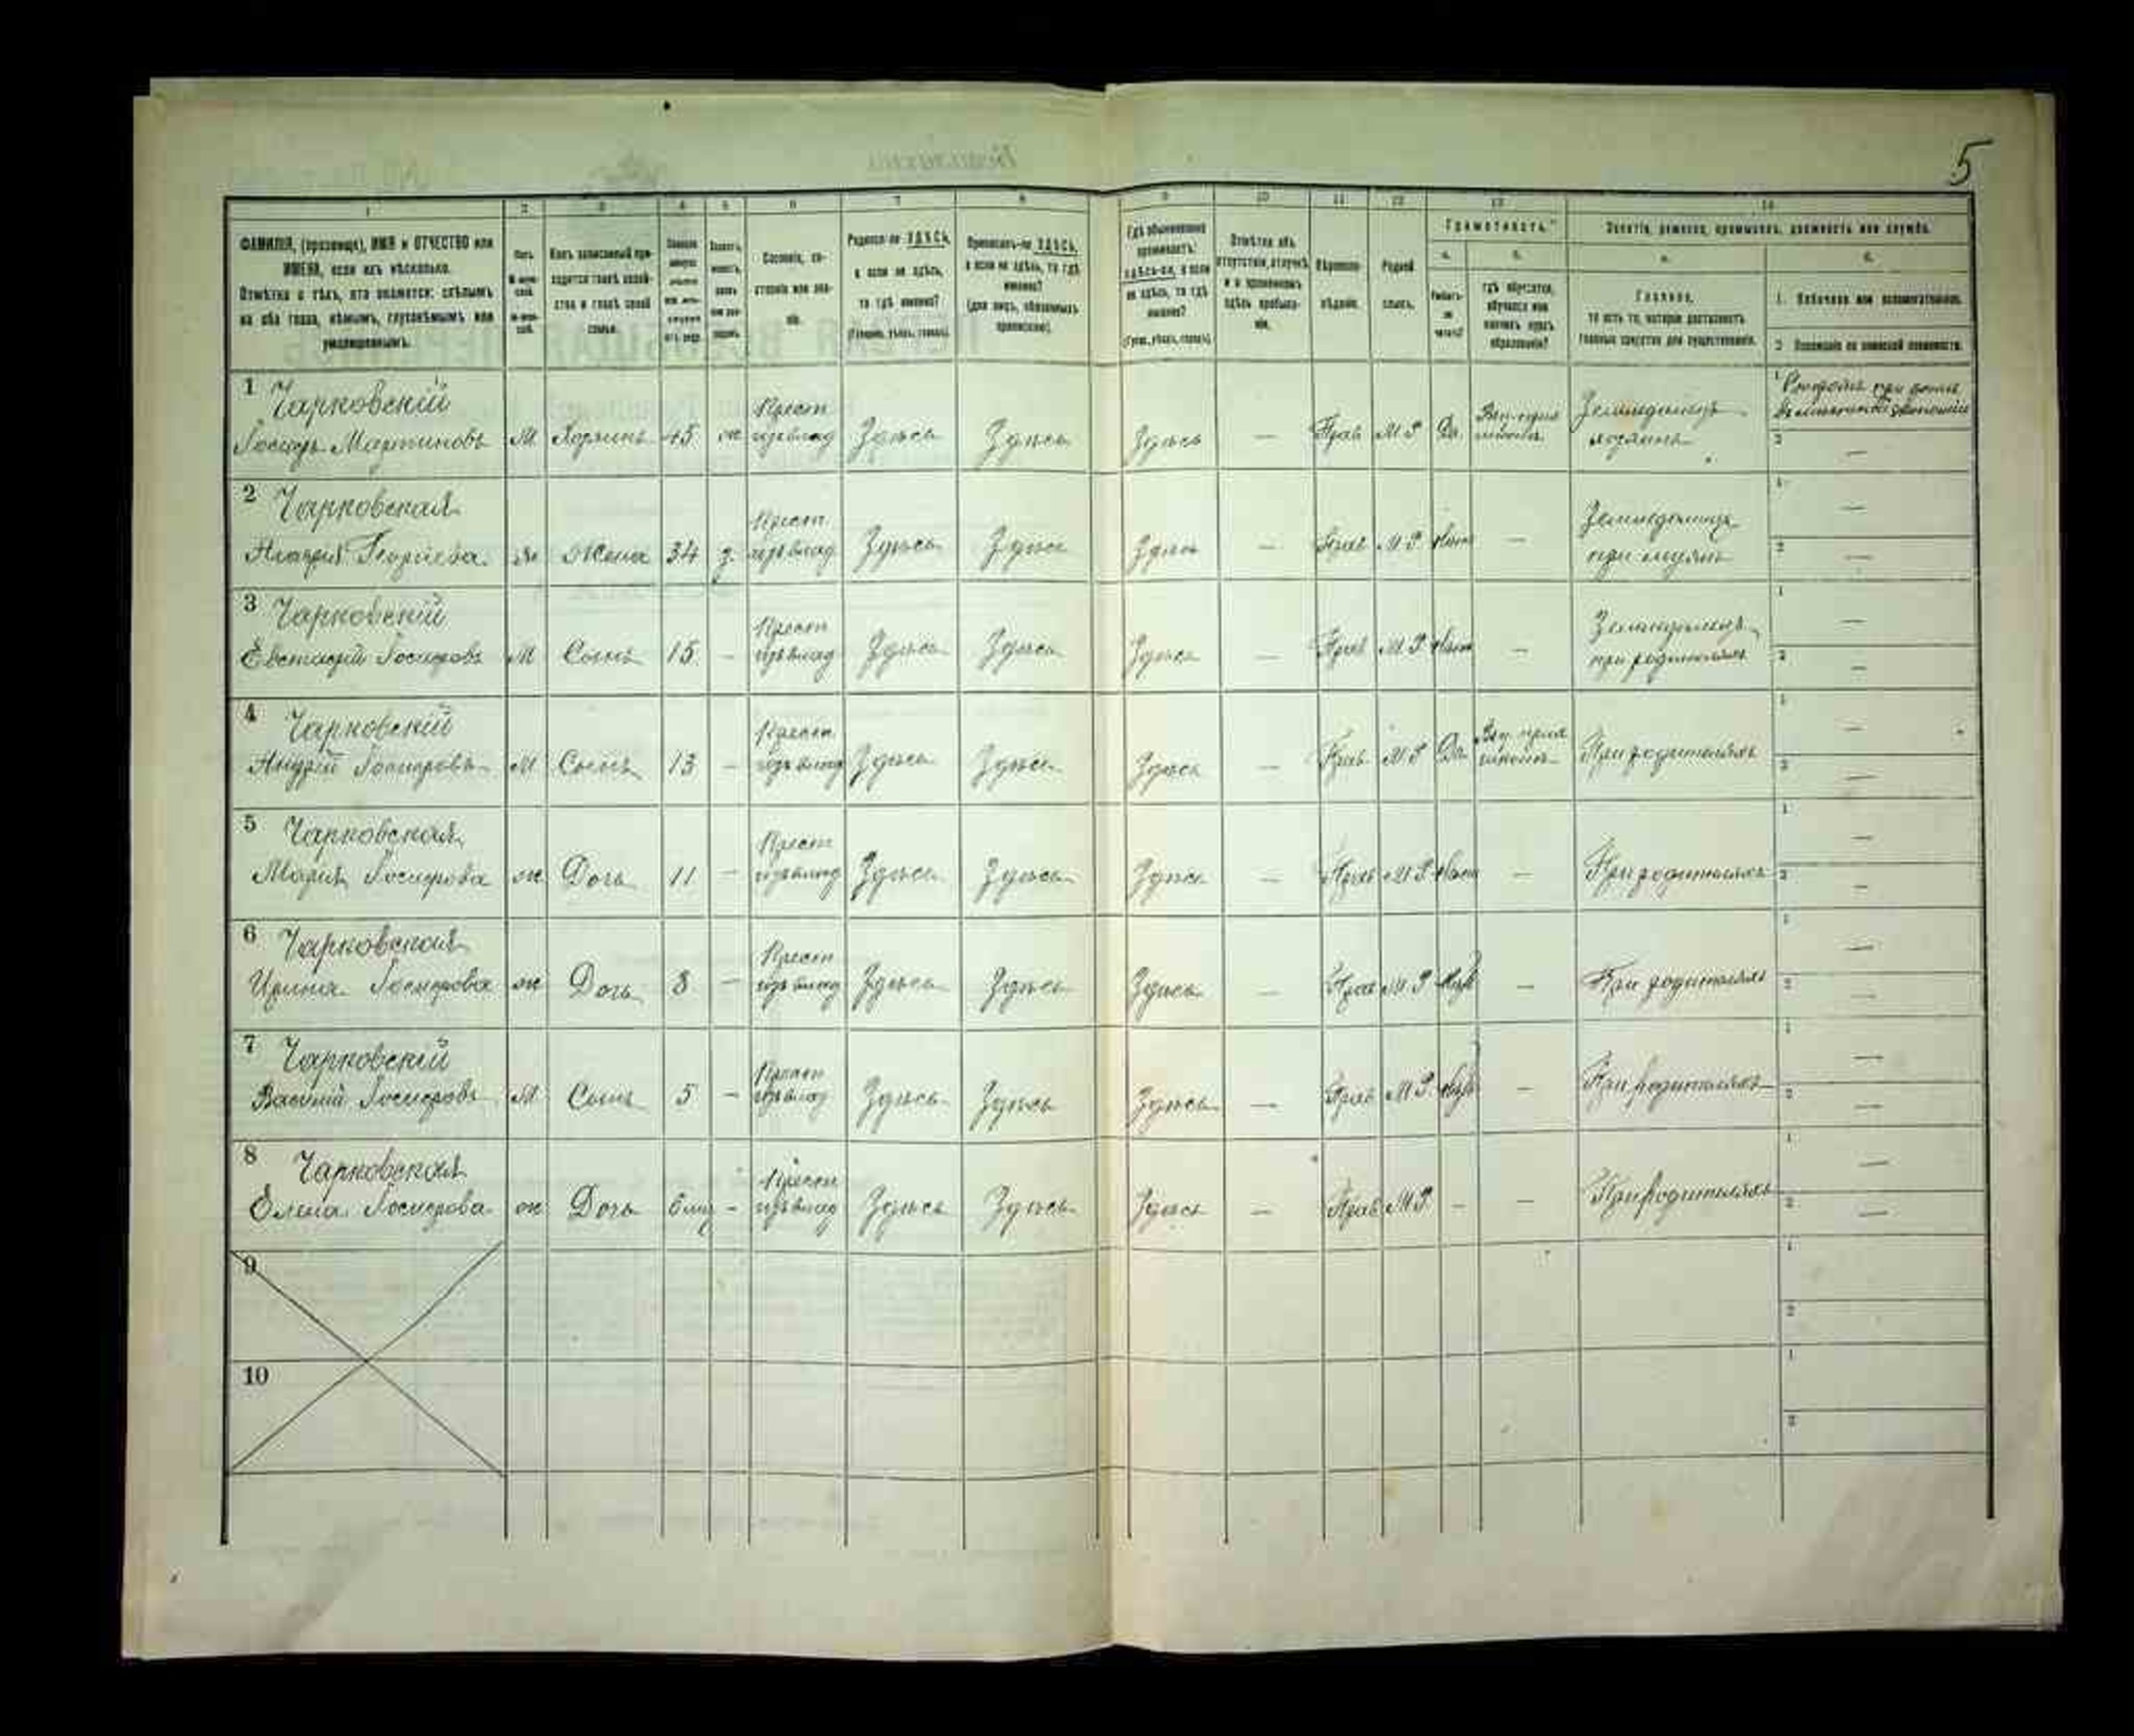 5
1 2 3 4 5 6 7 8 9 10 11 12 13 14
ФАМИЛІЯ, (прозвище), ИМЯ и ОТЧЕСТВО или
ИМЕНА, если ихъ нѣсколько.
Отмѣтка о тѣхъ, кто окажется: слѣпымъ
на оба глаза, нѣмымъ, глухонѣмымъ или
умалишеннымъ.
Полъ.
Какъ записанный при-
ходится главѣ хозяй-
ства и главѣ своей
семьи.
Сословіе, со-
стояніе или зва-
ніе.
Родился-ли ЗДѢСЬ,
а если не здѣсь,
то гдѣ именно?
(Губернія, уѣздъ, городъ).
Приписанъ-ли ЗДѢСЬ,
а если не здѣсь, то гдѣ
именно?
(для лицъ, обязанныхъ
припискою).
Гдѣ обыкновенно
проживаетъ:
здѣсь-ли, а если
не здѣсь, то гдѣ
именно?
(Губ., уѣздъ, городъ).
Отмѣтка объ
отсутствіи, отлучкѣ
и о временномъ
здѣсь пребыва-
ніи.
Вѣроиспо-
вѣданіе.
Родной
языкъ.
Грамотность
а. б.
Умѣетъ-
ли
читать?
гдѣ обучается,
обучался или
кончилъ курсъ
образованія?
Занятіе, ремесло, промыселъ, должность или служба.
а. б.
Главное,
то есть то, которое доставляетъ
главныя средства для существованія.
1. Побочное или вспомогательное.
2. Положеніе по воинской повинности.
1 Чарковскій
Іосифъ Мартиновъ М Хозяинъ 45 ж Крест. Здѣсь Здѣсь Здѣсь — Прав М Р Да Землѣдѣлецъ
хозяинъ
1
2 —
2 Чарковская
Жена 34 з. Крест. Здѣсь Здѣсь Здѣсь — Прав М Р Нет — Землѣдѣлецъ
при мужѣ
1 —
2 —
3 Чарковскій
Евстафій Іосифовъ М Сынъ 15 — Крест. Здѣсь Здѣсь Здѣсь — Прав М Р Нет — Землѣдѣлецъ
при родителяхъ
1 —
2 —
4 Чарковскій
Андрій Іосифовъ М Сынъ 13 — Крест. Здѣсь Здѣсь Здѣсь — Прав М Р Да При родителяхъ
1 —
2 —
5 Чарковская
Марія Іосифова ж Дочь 11 — Крест. Здѣсь Здѣсь Здѣсь — Прав М Р Нет — При родителяхъ
1 —
2 —
6 Чарковская
Ирина Іосифова ж Дочь 8 — Крест. Здѣсь Здѣсь Здѣсь — Прав М Р — При родителяхъ
1 —
2 —
7 Чарковскій
Василій Іосифовъ М Сынъ 5 — Крест. Здѣсь Здѣсь Здѣсь — Прав М Р — При родителяхъ
1 —
2 —
8 Чарковская
Елена Іосифова ж Дочь — Крест. Здѣсь Здѣсь Здѣсь — Прав М Р — — При родителяхъ
1 —
2 —
9
1
2
10
1
2